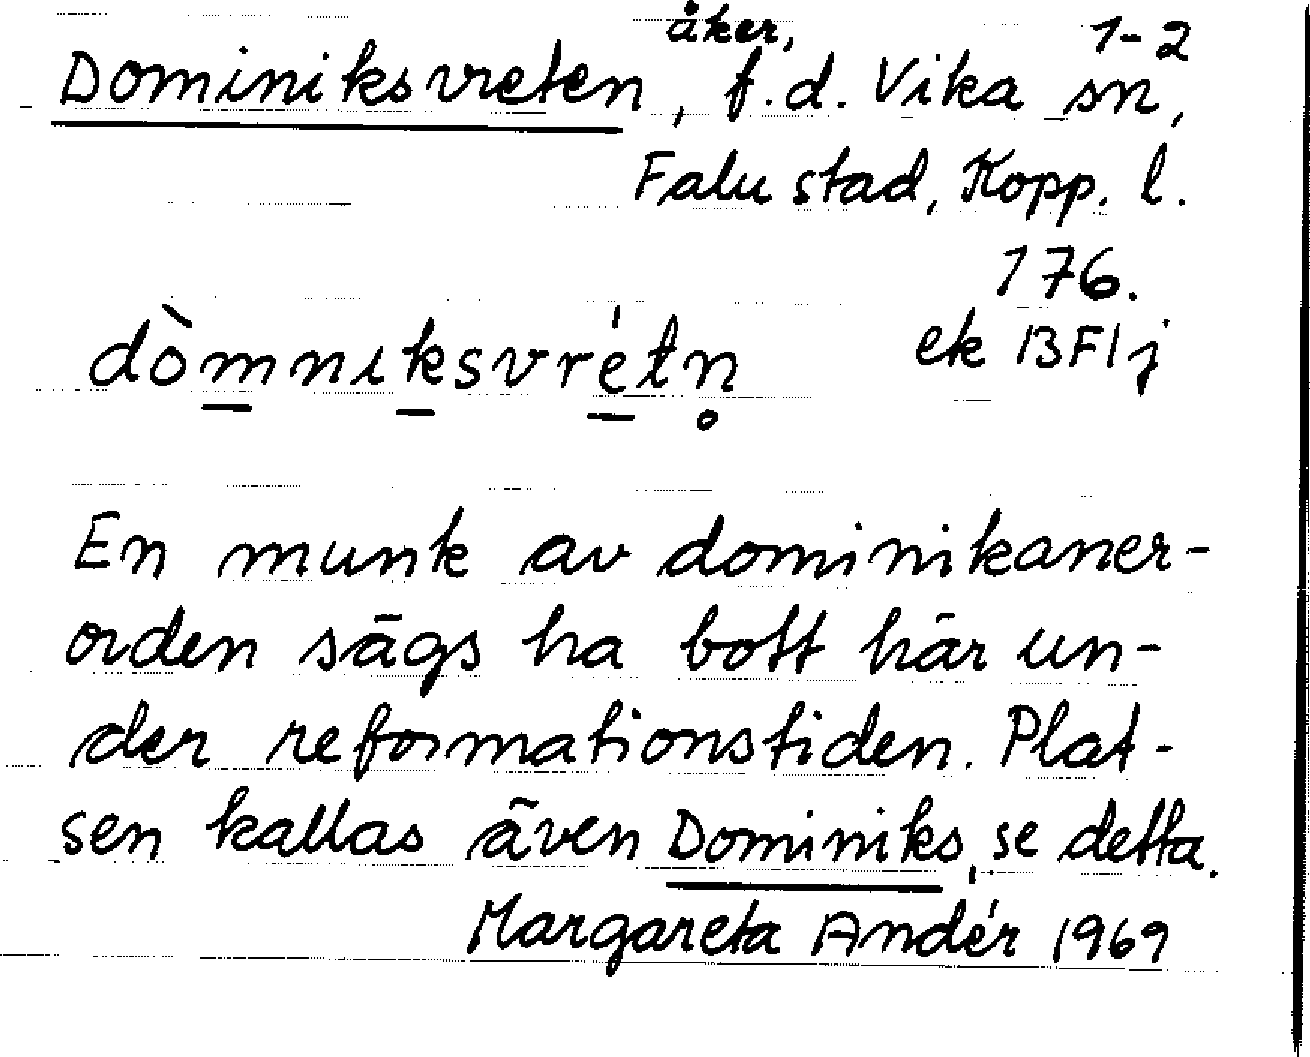 åker, 1-2
Dominiksvreten, f.d. Vika sn,
Falu stad, Kopp. l.
176.
dòm̱niḵsvré̱tn̥ ek BFl j
En munk av dominikaner-
orden sägs ha bott här un-
der reformationstiden. Plat-
sen kallas även Dominiks, se detta.
Margareta Andér 1969